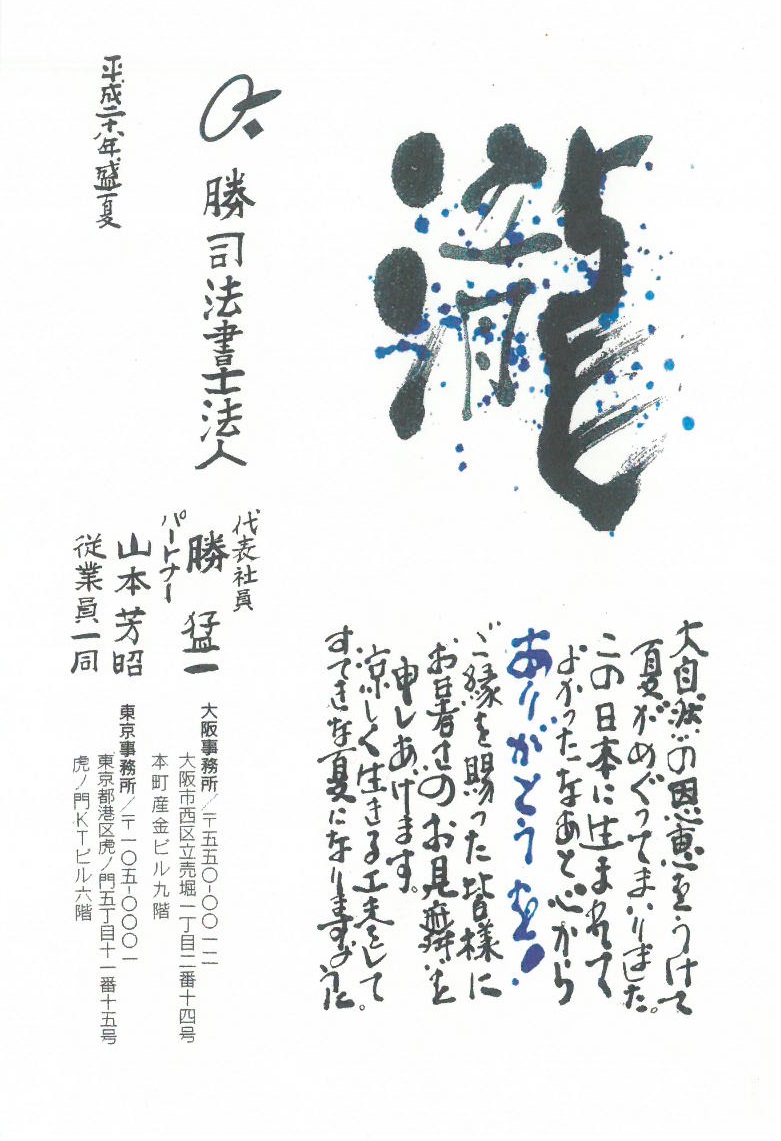 瀧
大自然の恩恵をうけて
夏がめぐってまいりました。
この日本に生まれて
よかったなあと心から
ありがとうを!
ご縁を賜った皆様に
お暑さのお見舞を
申しあげます。
涼しく生きる工夫をして
すてきな夏になりますように。
勝司法書士法人
代表社員
勝 猛一
パートナー
山本芳昭
従業員一同
大阪事務所/〒五五〇-〇〇一二
大阪市西区立売堀一丁目二番十四号
本町産金ビル九階
東京事務所/〒一〇五-〇〇〇一
東京都港区虎ノ門五丁目十一番十五号
虎ノ門KTビル六階
平成二十八年盛夏